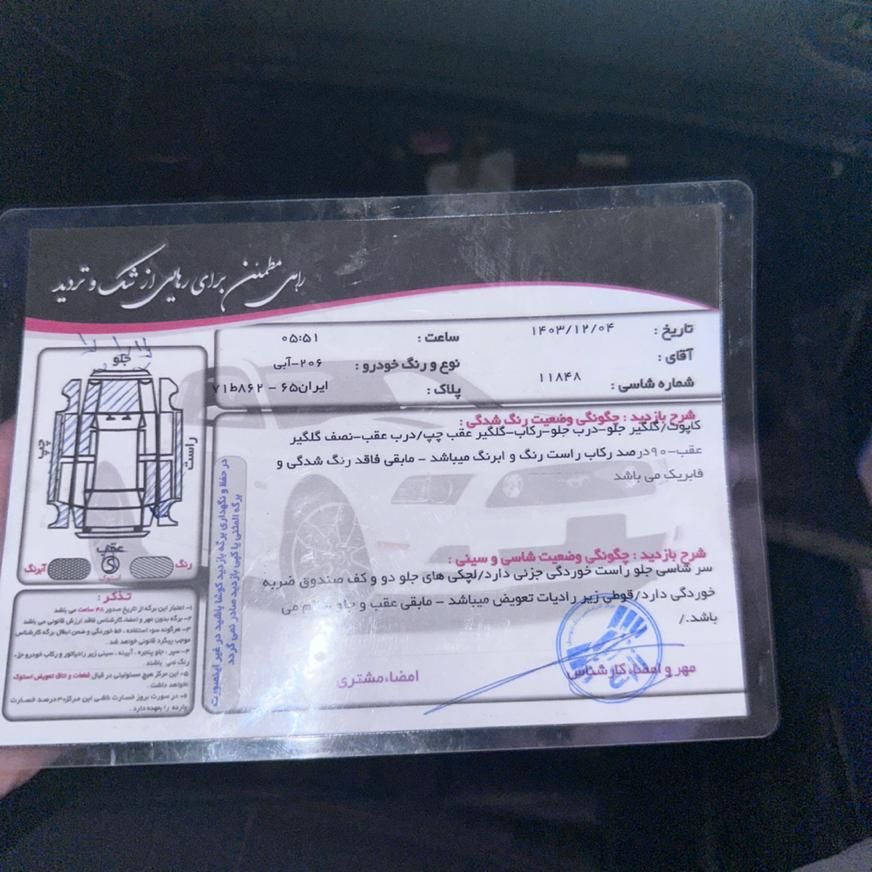 راهی مطمئن برای رهایی از شک و تردید
تاریخ : ۱۴۰۳/۱۲/۰۴
ساعت : ۰۵:۵۱
آقای :
نوع و رنگ خودرو : ۲۰۶-آبی
شماره شاسی : ۱۱۸۴۸
پلاک : ایران۶۵ - ۸۶۲ط۷۱
شرح بازدید : چگونگی وضعیت رنگ شدگی :
کاپوت/گلگیر جلو-درب جلو-رکاب-گلگیر عقب چپ/درب عقب-نصف گلگیر
عقب-۹۰درصد رکاب راست رنگ و ابرنگ میباشد - مابقی فاقد رنگ شدگی و
فابریک می باشد
شرح بازدید : چگونگی وضعیت شاسی و سینی :
سر شاسی جلو راست خوردگی جزئی دارد/لچکی های جلو دو و کف صندوق ضربه
خوردگی دارد/قوطی زیر رادیات تعویض میباشد - مابقی عقب و جلو سالم می
باشد./
مهر و امضاء کارشناس
امضاء مشتری
در حفظ و نگهداری برگه بازدید کوشا باشید در غیر اینصورت
برگه المثنی یا کپی بازدید صادر نمی گردد
جلو
چپ
راست
عقب
رنگ
استوک
آبرنگ
تذکر :
۱- اعتبار این برگه از تاریخ صدور ۴۸ ساعت می باشد
۲- برگه بدون مهر و امضاء کارشناس فاقد ارزش قانونی می باشد
۳- هرگونه سوء استفاده ، خط خوردگی و ضمن ابطال برگه کارشناس
موجب پیگرد قانونی خواهد شد
۴- سپر ، جلو پنجره ، آیینه ، سینی زیر رادیاتور و رکاب خودرو جزء
رنگ نمی باشند .
۵- این مرکز هیچ مسئولیتی در قبال قطعات و اتاق تعویض استوک
نخواهد داشت .
۶- در صورت بروز خسارت ناشی این مرکز ۳۰درصد خسارت
وارده را بعهده دارد .